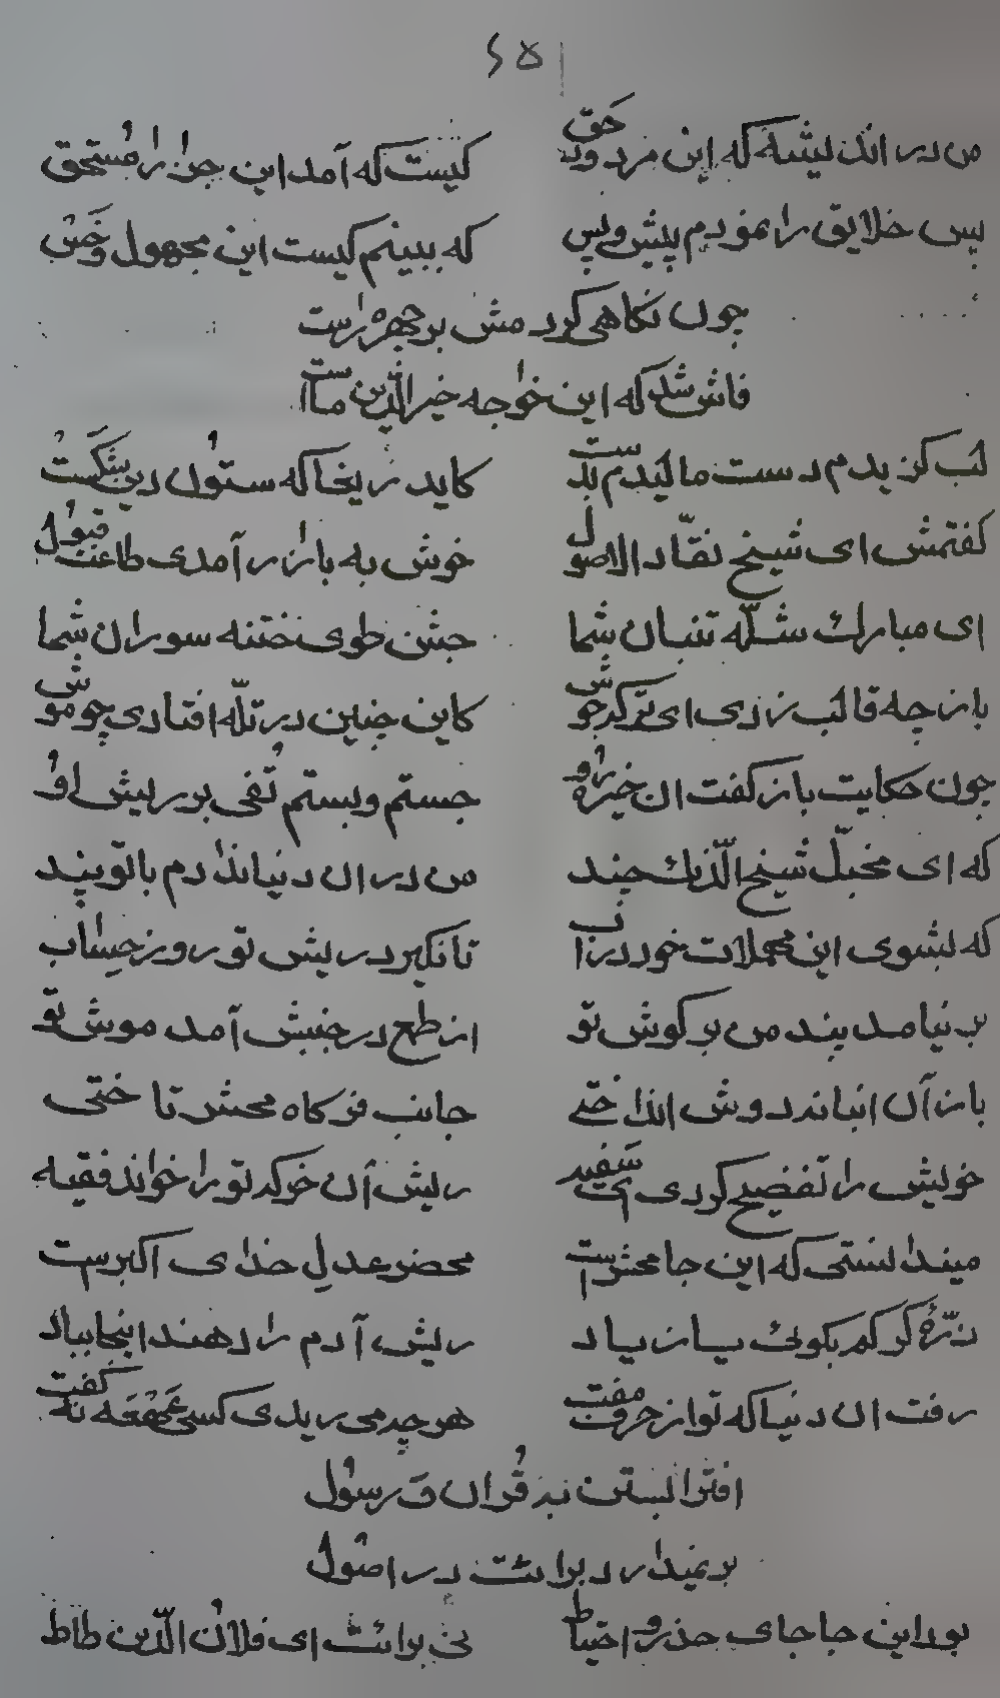 ۶۵
من در اندیشه که این مرد و حق کیست که آمد این جزا را مستحق
پس خلایق را نمودم پیش و پس که ببینم کیست این مجهول و خس
چون نگاهی کردمش بر چهره راست
فاش شد که این خواجه خیرالدین ماست
لب گزیدم دست مالیدم بدست کاید ریخا که ستون دین شکست
گفتمش ای شیخ نقّاد الاصول خوش به بازار آمدی طاعت قبول
ای مبارک شلّه تنبان شما جشن طوی ختنه سوران شما
باز چه قالب زدی ای ترکه جوش کاین چنین در تلّه افتادی چو موش
چون حکایت باز گفت ان خیره رو جستم و بستم تُفی بر ریش او
که ای مخبّل شیخ الدّنگ چند من در ان دنیا ندادم با تو پند
که بشوی این مهملات خود در آب تا نگیرد ریش تو روز حساب
بر نیامد پند من بر گوش تو از طمع در جنبش آمد موش تو
باز آن انبانه دوش انداختی جانب فرگاه محشر تاختی
خویش را تفضیح کردی ای سفیه ریش آن خر که تو را خواند فقیه
میندانستی که این جا محشر است محضر عدل خدای اکبرست
ذرّهٔ گر کم بگوئی یا زیاد ریش آدم را دهند اینجا بباد
رفت ان دنیا که تو از حرف مفت هر چه می ریدی کسی عمهته نگفت
افترا بستن به قُران و رسول
بر نمیدارد برائت در اصول
بود این جا جای حذر و احتیاط نی برائت ای فلان الدّین طاط